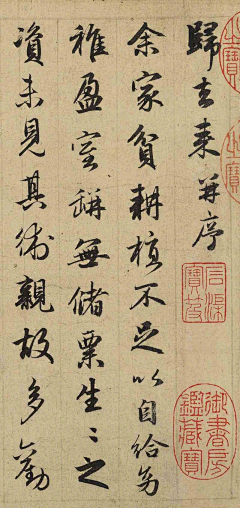 歸去来并序
余家貧耕植不足以自給幼
稚盈室缾無儲粟生〻之
資未見其術親故多勸
石渠寶笈
御書房鑑藏寶